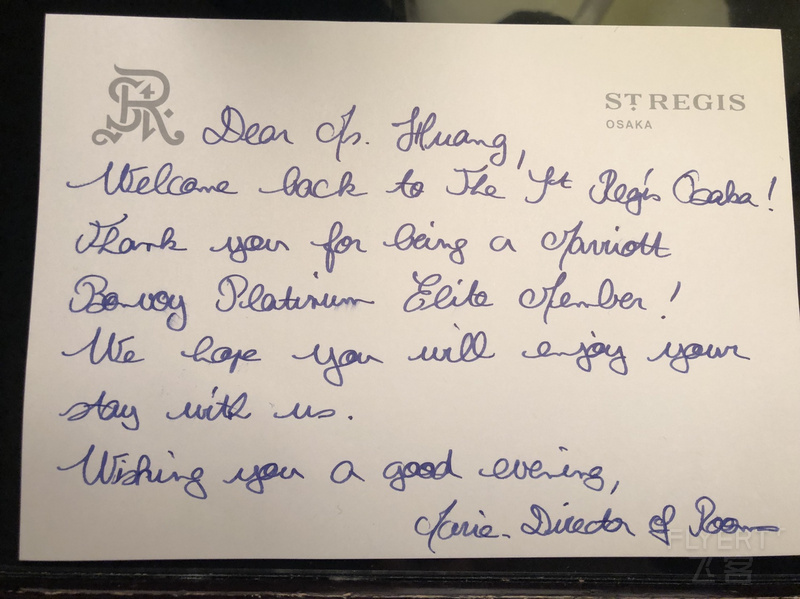 ST. REGIS
OSAKA
Dear Ms. Huang,
Welcome back to The St Regis Osaka!
Thank you for being a Marriott
Bonvoy Platinum Elite Member!
We hope you will enjoy your
stay with us.
Wishing you a good evening,
Marie - Director of Rooms
FLYERT